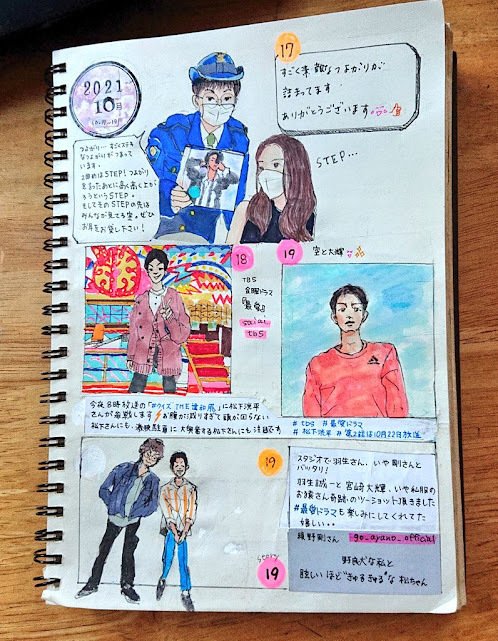 2021
10月
17
すごく素敵なつながりが
詰まってます
ありがとうございます
つながり…すごくステキ
なつながりがつまって
います。
2曲めはSTEP! つながり
を知ったあとに高く高く上が
ろうというSTEP。
そしてそのSTEPの先は
みんなが見てる空。ぜひ
お耳をお貸し下さい!
STEP…
18
TBS
金曜ドラマ
『最愛』
saiai_
tbs
19
空と大輝
今夜8時放送の「#クイズ THE違和感」に松下洸平
さんが参戦します⚡お腹が減りすぎて頭が回らない
松下さんにも、激映駐車に大興奮する松下さんにも注目です
# tbs # 最愛ドラマ
# 松下洸平 # 第2話は10月22日放送
19
スタジオで羽生さん、いや 剛さんと
バッタリ!
羽生誠一と宮崎大輝、いや私服の
お銀さん奇跡のツーショット頂きました
#最愛ドラマも楽しみにしてくれてた
嬉しい..
綾野剛さん go_ayano_official
野良犬な私と
眩しいほど"きゅるきゅる"な 松ちゃん
story
19